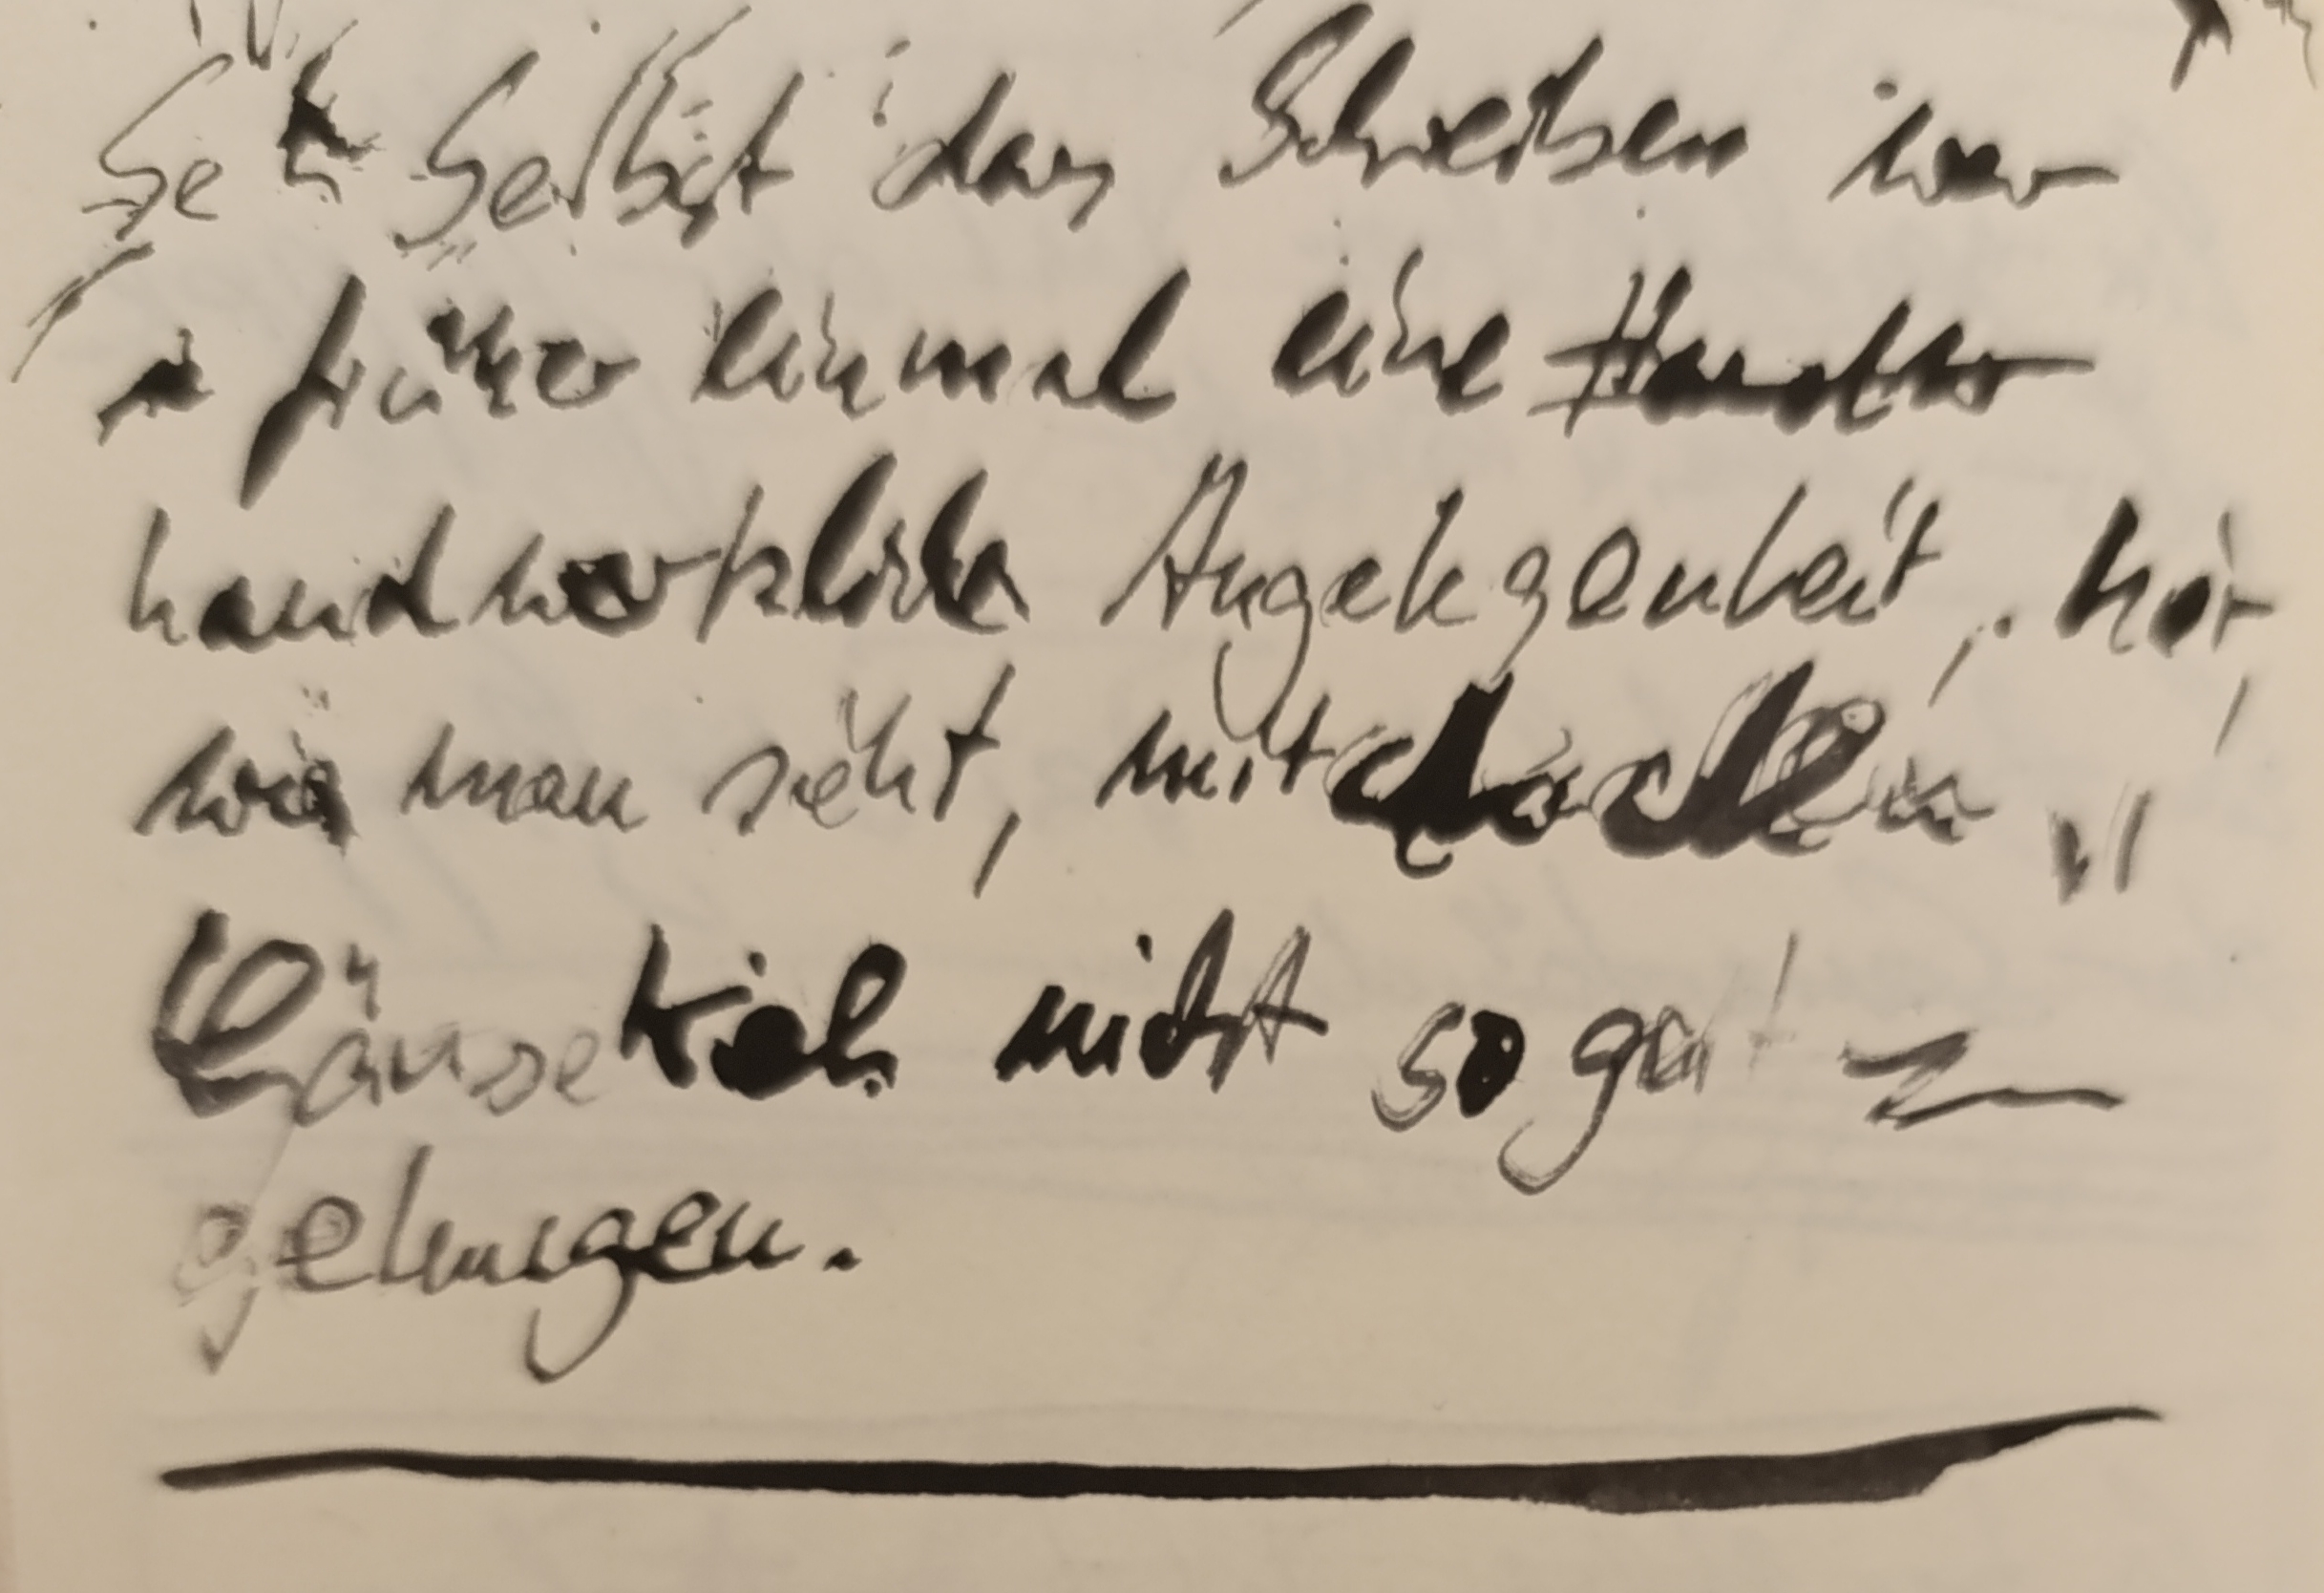 Se Selbst das Schreiben war
früher einmal eine
handwerkliche Angelegenheit, hier,
wie man sieht, mit dem
Gänsekiel nicht so gut
gelungen.